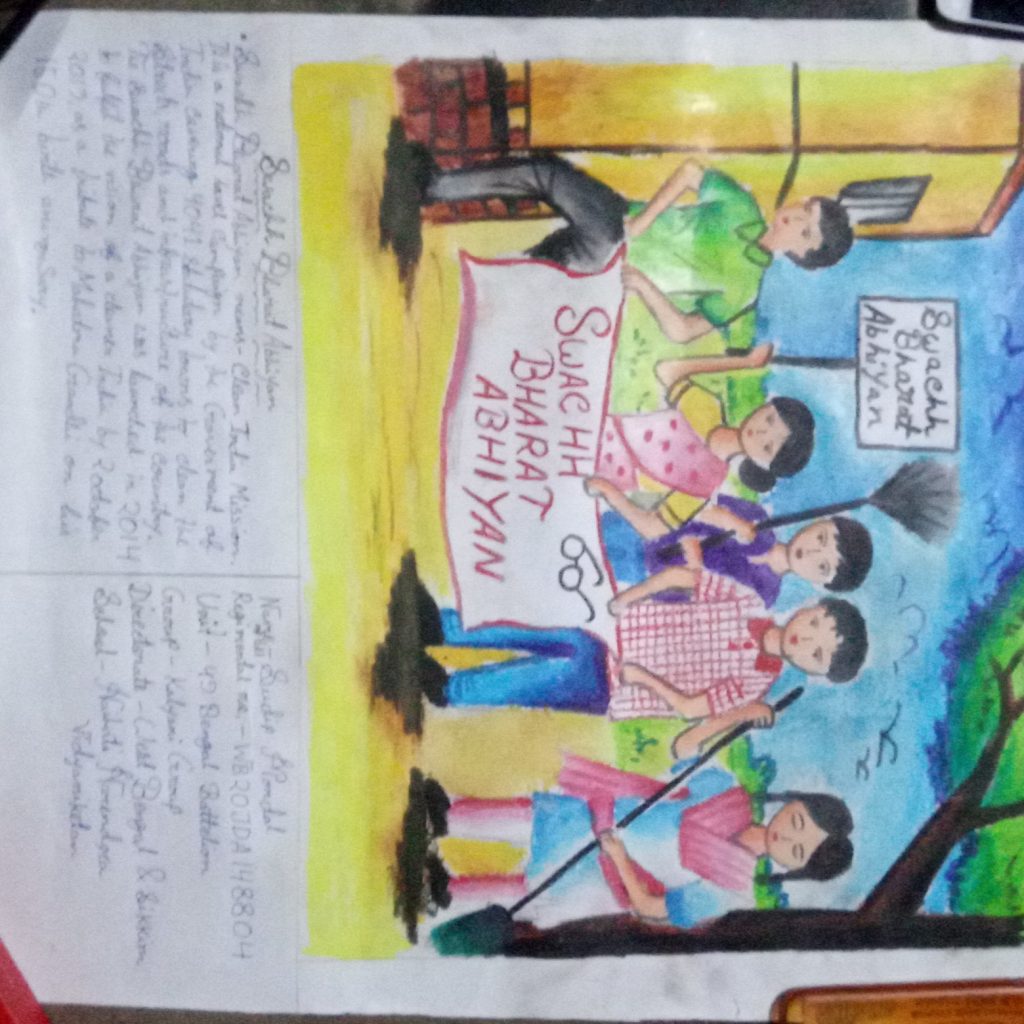 Swachh
Bharat
Abhiyan
SWACHH
BHARAT
ABHIYAN
Swachh Bharat Abhiyan
• Swachh Bharat Abhiyan means - Clean India Mission
It is a national level Campaign by the Government of
India, covering 4041 statutory towns to clean the
Streets, roads and infrastructure of the country.
The Swachh Bharat Abhiyan was launched in 2014
to fulfil the vision of a cleaner India by 2 october
2019 as a tribute to Mahatma Gandhi on his
150th birth anniversary.
Name - Mondal
Regimental no. - WB20JDA148804
Unit - 49 Bengal Battalion
Group - Kalyani Group
Directorate - West Bengal & Sikkim
School -